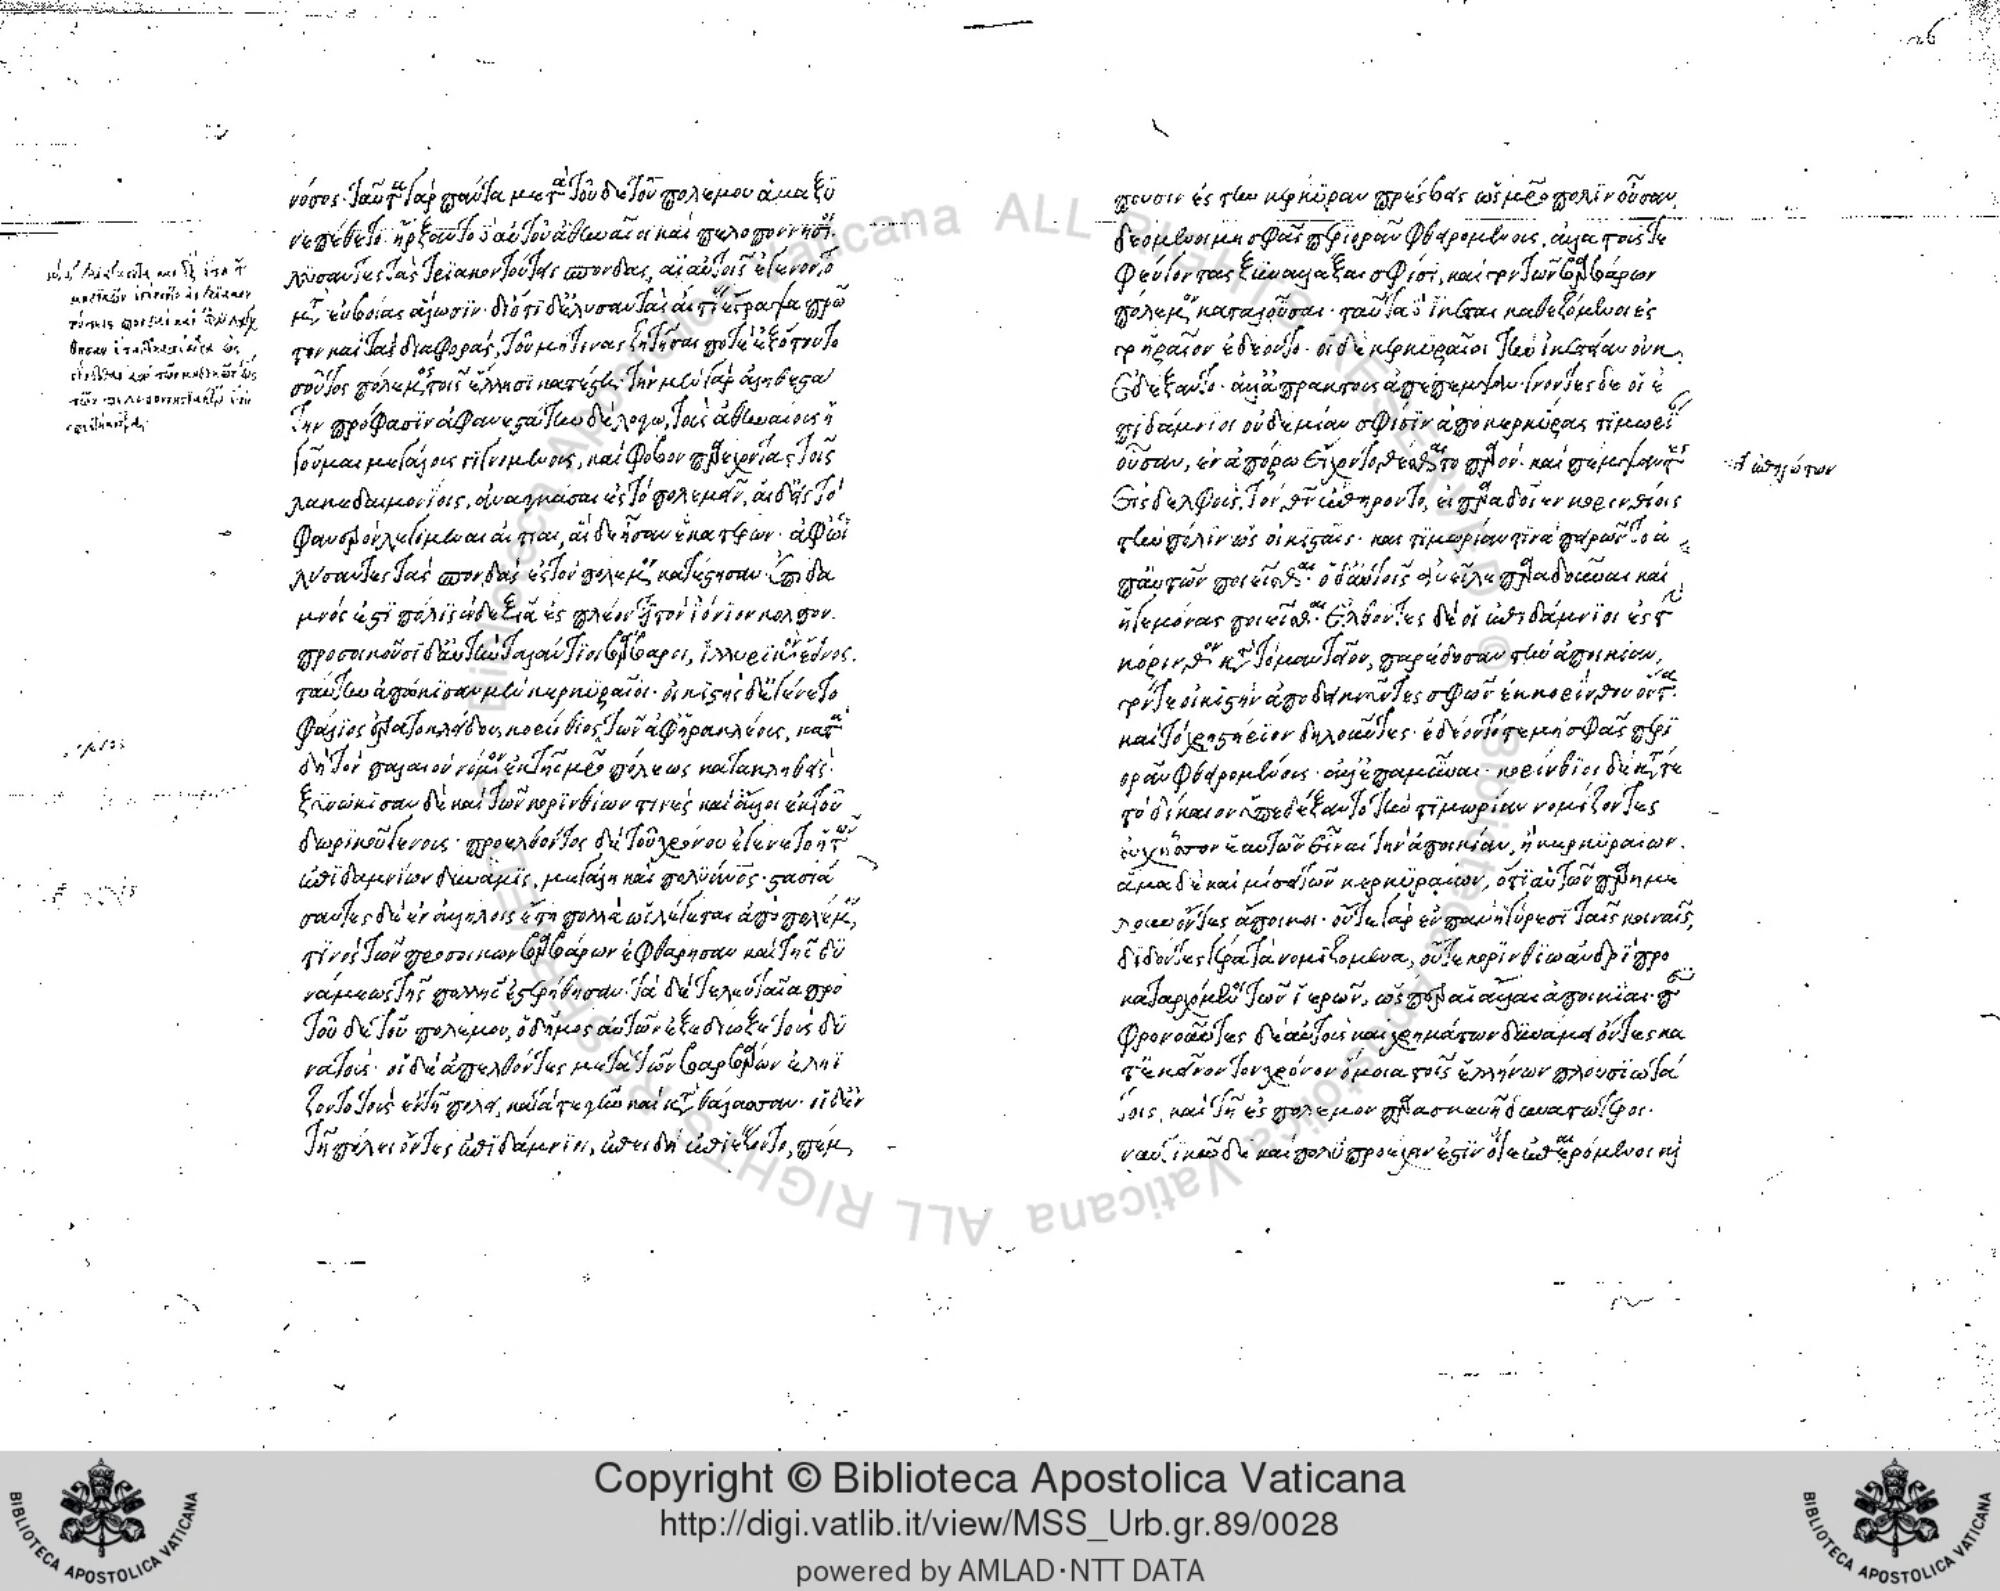 νόσος· ταῦτα γὰρ πάντα μετὰ τοῦδε τοῦ πολέμου ἅμα ξυ
νεπέθετο· ἤρξαντο δὲ αὐτοῦ ἀθηναῖοι καὶ πελοποννήσιοι
λύσαντες τὰς τριακοντούτεις σπονδὰς, αἳ αὐτοῖς ἐγένοντο
μετὰ εὐβοίας ἅλωσιν· διότι δ' ἔλυσαν τὰς αἰτίας ἔγραψα πρῶ
τον καὶ τὰς διαφορὰς, τοῦ μή τινας ζητῆσαι ποτὲ ἐξ ὅτου το
σοῦτος πόλεμος τοῖς ἕλλησι κατέστη· τὴν μὲν γὰρ ἀληθεστά
την πρόφασιν ἀφανεστάτην δὲ λόγω, τοὺς ἀθηναίους ἡ
γοῦμαι μεγάλους γιγνομένους, καὶ φόβον παρέχοντας τοῖς
λακεδαιμονίοις, ἀναγκάσαι ἐς τὸ πολεμεῖν, αἱ δ' ἐς τὸ
φανερὸν λεγόμεναι αἰτίαι, αἵδε ἦσαν ἑκατέρων· ἀφ' ὧν
λύσαντες τὰς σπονδὰς ἐς τὸν πόλεμον κατέστησαν· ἐπίδα
μνός ἐστι πόλις ἐν δεξιᾷ ἐς πλέοντι τὸν ἰόνιον κόλπον·
προσοικοῦσι δ' αὐτὴν ταυλάντιοι βάρβαροι, ἰλλυρικὸν ἔθνος·
ταύτην ἀπώκισαν μὲν κερκυραῖοι· οἰκιστὴς δ' ἐγένετο
φάλιος ἐρατοκλείδου, κορίνθιος, τῶν ἀφ' ἡρακλέους, κατὰ
δὴ τὸν παλαιὸν νόμον ἐκ τῆς μητροπόλεως κατακληθείς·
ξυνώκισαν δὲ καὶ τῶν κορινθίων τινὲς καὶ ἄλλοι ἐκ τοῦ
δωρικοῦ γένους· προελθόντος δὲ τοῦ χρόνου ἐγένετο ἡ τῶν
ἐπιδαμνίων δύναμις, μεγάλη καὶ πολυάνθρωπος· στασιά
σαντες δὲ ἐν ἀλλήλοις ἔτη πολλὰ ὡς λέγεται ἀπὸ πολέμου
τινὸς τῶν προσοίκων βαρβάρων ἐφθάρησαν καὶ τῆς δυ
νάμεως τῆς πολλῆς ἐστερήθησαν· τὰ δὲ τελευταῖα πρὸ
τοῦδε τοῦ πολέμου, ὁ δῆμος αὐτῶν ἐξεδίωξε τοὺς δυ
νατούς· οἱ δὲ ἀπελθόντες μετὰ τῶν βαρβάρων ἐληΐ
ζοντο τοὺς ἐν τῇ πόλει, κατά τε γῆν καὶ κατὰ θάλασσαν· οἱ δὲ ἐν
τῇ πόλει ὄντες ἐπιδάμνιοι, ἐπειδὴ ἐπιέζοντο, πέμ
πουσιν ἐς τὴν κέρκυραν πρέσβεις ὡς μητρόπολιν οὖσαν
δεόμενοι μὴ σφᾶς περιορᾶν φθειρομένους, ἀλλὰ τούς τε
φεύγοντας ξυναλλάξαι σφίσι, καὶ τὸν τῶν βαρβάρων
πόλεμον καταλῦσαι· ταῦτα δὲ ἱκέται καθεζόμενοι ἐς
τὸ ἥραιον ἐδέοντο· οἱ δὲ κερκυραῖοι τὴν ἱκετείαν οὐκ
ἐδέξαντο· ἀλλ' ἀπράκτους ἀπέπεμψαν· γνόντες δὲ οἱ ἐ
πιδάμνιοι οὐδεμίαν σφίσιν ἀπὸ κερκύρας τιμωρί
οὖσαν, ἐν ἀπόρω εἴχοντο θέσθαι τὸ παρόν· καὶ πέμψαντες
ἐς δελφοὺς, τὸν θεὸν ἐπήροντο, εἰ παραδοῖεν κορινθίοις
τὴν πόλιν ὡς οἰκισταῖς· καὶ τιμωρίαν τινὰ πειρῶντο ἀ
π' αὐτῶν ποιεῖσθαι· ὁ δ' αὐτοῖς ἀνεῖλε παραδοῦναι καὶ
ἡγεμόνας ποιεῖσθαι· ἐλθόντες δὲ οἱ ἐπιδάμνιοι ἐς τὴν
κόρινθον κατὰ τὸ μαντεῖον, παρέδοσαν τὴν ἀποικίαν,
τόν τε οἰκιστὴν ἀποδεικνύντες σφῶν ἐκ κορίνθου ὄντα·
καὶ τὸ χρηστήριον δηλοῦντες· ἐδέοντό τε μὴ σφᾶς περι
ορᾶν φθειρομένους· ἀλλ' ἐπαμῦναι· κορίνθιοι δὲ κατά τε
τὸ δίκαιον ὑπεδέξαντο τὴν τιμωρίαν νομίζοντες
οὐχ ἧσσον ἑαυτῶν εἶναι τὴν ἀποικίαν, ἢ κερκυραίων·
ἅμα δὲ καὶ μίσει τῶν κερκυραίων, ὅτι αὐτῶν παρημέ
λουν ὄντες ἄποικοι· οὔτε γὰρ ἐν πανηγύρεσι ταῖς κοιναῖς,
διδόντες γέρα τὰ νομιζόμενα, οὔτε κορινθίω ἀνδρὶ προ
καταρχόμενοι τῶν ἱερῶν, ὥσπερ αἱ ἄλλαι ἀποικίαι· περι
φρονοῦντες δὲ αὐτοὺς καὶ χρημάτων δυνάμει ὄντες κα
τ' ἐκεῖνον τὸν χρόνον ὅμοια τοῖς ἑλλήνων πλουσιωτά
τοις, καὶ τῇ ἐς πόλεμον παρασκευῇ δυνατώτεροι·
ναυτικῶ δὲ καὶ πολὺ προέχειν ἔστιν ὅτε ἐπαιρόμενοι καὶ
Copyright © Biblioteca Apostolica Vaticana
http://digi.vatlib.it/view/MSS_Urb.gr.89/0028
powered by AMLAD·NTT DATA
BIBLIOTECA APOSTOLICA VATICANA
BIBLIOTECA APOSTOLICA VATICANA